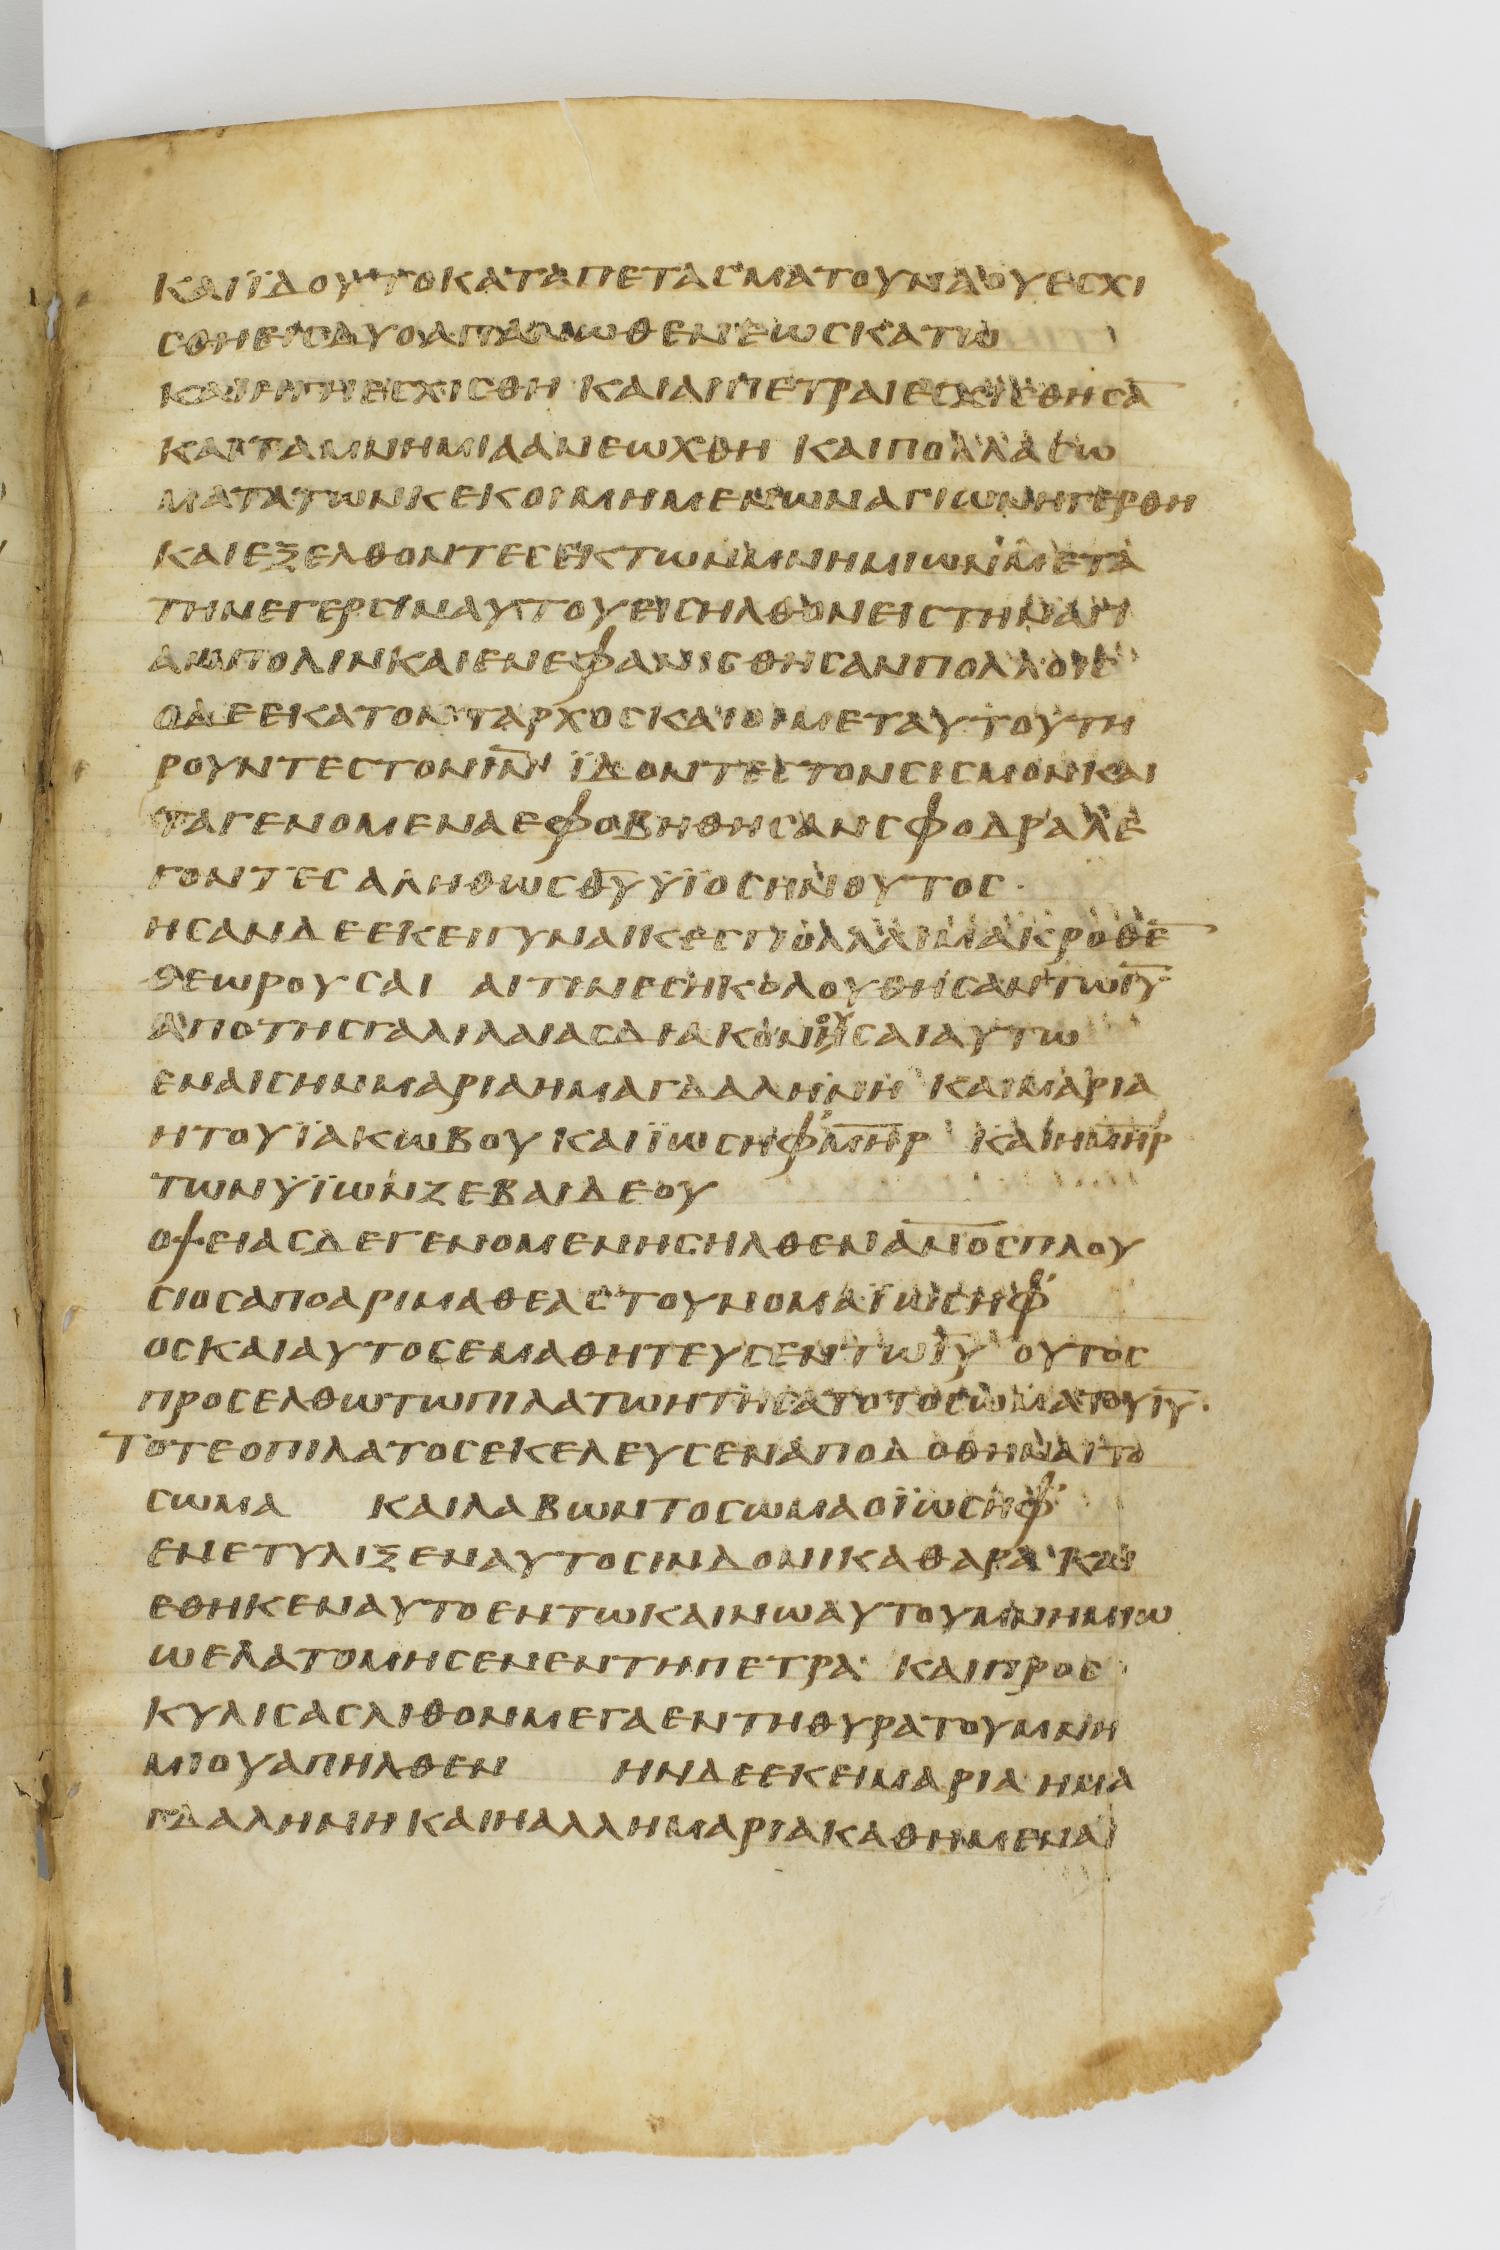 ΚΑΙΪΔΟΥΤΟΚΑΤΑΠΕΤΑСΜΑΤΟΥΝΑΟΥΕСΧΙ
СΘΗΕΙСΔΥΟΑΠΑΝΩΘΕΝΕΩСΚΑΤΩ
ΚΑΙΗΓΗΕСΧΙСΘΗ ΚΑΙΑΙΠΕΤΡΑΙΕСΧΙСΘΗСΑ̅
ΚΑΙΤΑΜΝΗΜΙΑΑΝΕΩΧΘΗ ΚΑΙΠΟΛΛΑСΩ
ΜΑΤΑΤΩΝΚΕΚΟΙΜΗΜΕΝΩΝΑΓΙΩΝΗΓΕΡΘΗ
ΚΑΙΕΞΕΛΘΟΝΤΕСΕΚΤΩΝΜΝΗΜΙΩΝΜΕΤΑ
ΤΗΝΕΓΕΡСΙΝΑΥΤΟΥΕΙСΗΛΘΟΝΕΙСΤΗΝΑΓΙ
ΑΝΠΟΛΙΝΚΑΙΕΝΕΦΑΝΙСΘΗСΑΝΠΟΛΛΟΙС
ΟΔΕΕΚΑΤΟΝΤΑΡΧΟСΚΑΙΟΙΜΕΤΑΥΤΟΥΤΗ
ΡΟΥΝΤΕСΤΟΝΙ̅Ν̅ ΪΔΟΝΤΕСΤΟΝСΙСΜΟΝΚΑΙ
ΤΑΓΕΝΟΜΕΝΑΕΦΟΒΗΘΗСΑΝСΦΟΔΡΑΛΕ
ΓΟΝΤΕСΑΛΗΘΩСΘ̅Υ̅ΥΪΟСΗΝΟΥΤΟС·
ΗСΑΝΔΕΕΚΕΙΓΥΝΑΙΚΕСΠΟΛΛΑΙΜΑΚΡΟΘΕ̅
ΘΕΩΡΟΥСΑΙ ΑΙΤΙΝΕСΗΚΟΛΟΥΘΗСΑΝΤΩΙ̅Υ̅
ΑΠΟΤΗСΓΑΛΙΛΑΙΑСΔΙΑΚΟΝΟΥСΑΙΑΥΤΩ
ΕΝΑΙСΗΝΜΑΡΙΑΗΜΑΓΔΑΛΗΝΗ ΚΑΙΜΑΡΙΑ
ΗΤΟΥΪΑΚΩΒΟΥΚΑΙΪΩСΗΦ'Μ̅Η̅Ρ̅ ΚΑΙΗΜ̅Η̅Ρ̅
ΤΩΝΥΪΩΝΖΕΒΑΙΔΕΟΥ
ΟΨΕΙΑСΔΕΓΕΝΟΜΕΝΗСΗΛΘΕΝΑ̅Ν̅Ο̅С̅ΠΛΟΥ
СΙΟСΑΠΟΑΡΙΜΑΘΕΑСΤΟΥΝΟΜΑΪΩСΗΦ'
ΟСΚΑΙΑΥΤΟСΕΜΑΘΗΤΕΥСΕΝΤΩΙ̅Υ̅ ΟΥΤΟС
ΠΡΟСΕΛΘΩΤΩΠΙΛΑΤΩΗΤΗСΑΤΟΤΟСΩΜΑΤΟΥΙ̅Υ̅·
ΤΟΤΕΟΠΙΛΑΤΟСΕΚΕΛΕΥСΕΝΑΠΟΔΟΘΗΝΑΙΤΟ
СΩΜΑ ΚΑΙΛΑΒΩΝΤΟСΩΜΑΟΪΩСΗΦ'
ΕΝΕΤΥΛΙΞΕΝΑΥΤΟСΙΝΔΟΝΙΚΑΘΑΡΑ ΚΑΙ
ΕΘΗΚΕΝΑΥΤΟΕΝΤΩΚΑΙΝΩΑΥΤΟΥΜΝΗΜΙΩ
ΩΕΛΑΤΟΜΗСΕΝΕΝΤΗΠΕΤΡΑ ΚΑΙΠΡΟС
ΚΥΛΙСΑСΛΙΘΟΝΜΕΓΑΕΝΤΗΘΥΡΑΤΟΥΜΝΗ
ΜΙΟΥΑΠΗΛΘΕΝ ΗΝΔΕΕΚΕΙΜΑΡΙΑΗΜΑ
ΓΔΑΛΗΝΗΚΑΙΗΑΛΛΗΜΑΡΙΑΚΑΘΗΜΕΝΑΙ